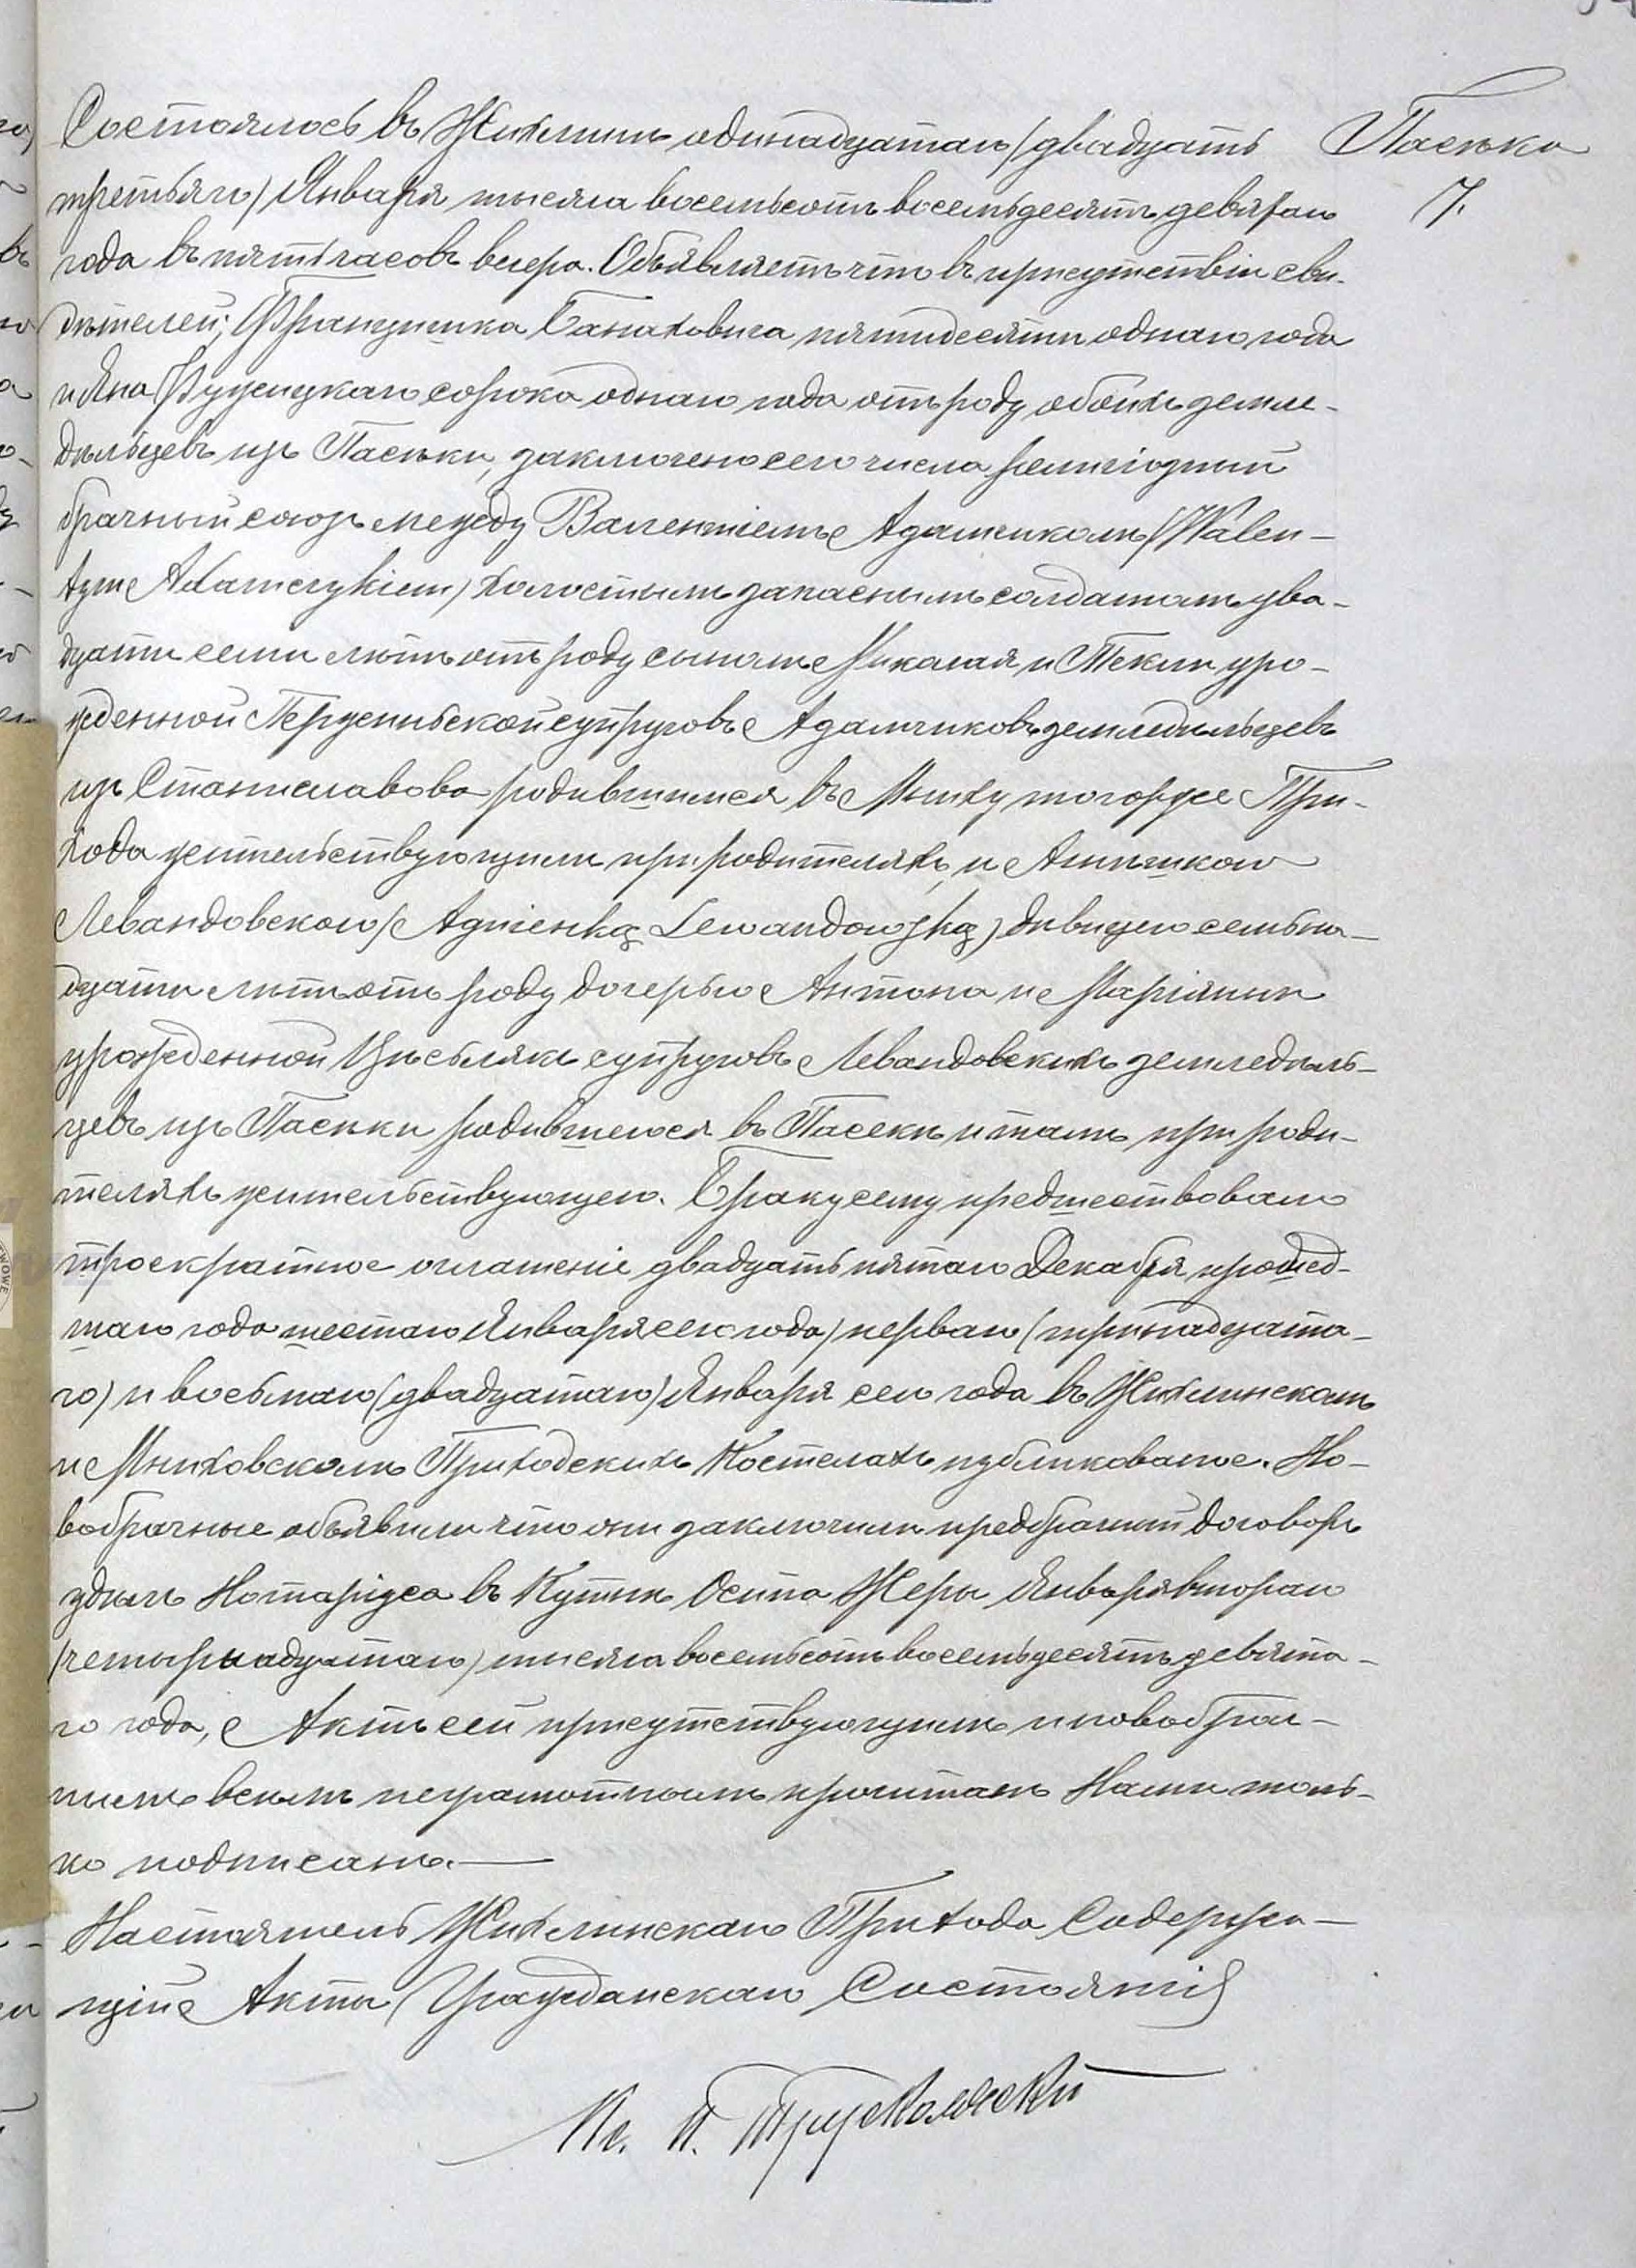 Состоялось въ Жихлинѣ одинадцатаго /двадцать
Пасѣка
третьяго/ Января тысяча восемьсотъ восемьдесятъ девятаго
7.
года въ пять часовъ вечера. Объявляемъ что въ присутствіи сви-
дѣтелей; Францишка Банаховича пятидесяти однаго года
и Яна сорока однаго года отъ роду обоихъ земле-
дѣльцевъ изъ Пасѣки, заключено сего числа религіозный
брачный союзъ между Валентіемъ Адамчикомъ /Walen-
tym Adamczykiem/ холостымъ запаснымъ солдатомъ два-
дцати семи лѣтъ отъ роду сыномъ Миколая и Текли уро-
жденной супруговъ Адамчиковъ земледѣльцевъ
изъ Станиславова родившимся въ Мниху тогожде При-
хода жительствующимъ при родителяхъ, и Агнѣшкою
Левандовскою /Agnieszką Lewandowską/ дѣвицею семьна-
дцати лѣтъ отъ роду дочерью Антона и Маріянны
урожденной Цесьлякъ супруговъ Левандовскихъ земледѣль-
цевъ изъ Пасѣки родившеюся въ Пасеки и тамъ при роди-
теляхъ жительствующею. Браку сему предшествовало
троекратное оглашеніе двадцать пятаго Декабря прошед-
шаго года /шестаго Января сего года/ перваго /тринадцата-
го/ и восьмаго /двадцатаго/ Января сего года въ Жихлинскомъ
и Мниховскомъ Приходскихъ Костелахъ публикованное. Но-
вобрачные объявили что они заключили предбрачный договоръ
у Нотаріуса въ Кутнѣ Осипа Жеры Января втораго
/четырнадцатаго/ тысяча восемьсотъ восемьдесятъ девята-
го года, Актъ сей присутствующимъ и новобрач-
нымъ всѣмъ неграмотнымъ прочитанъ Нами толь-
ко подписанъ.—
Настоятель Жихлинскаго Прихода Содержа-
щій Акты Гражданскаго Состоянія
Кс. П. Трусколяскій